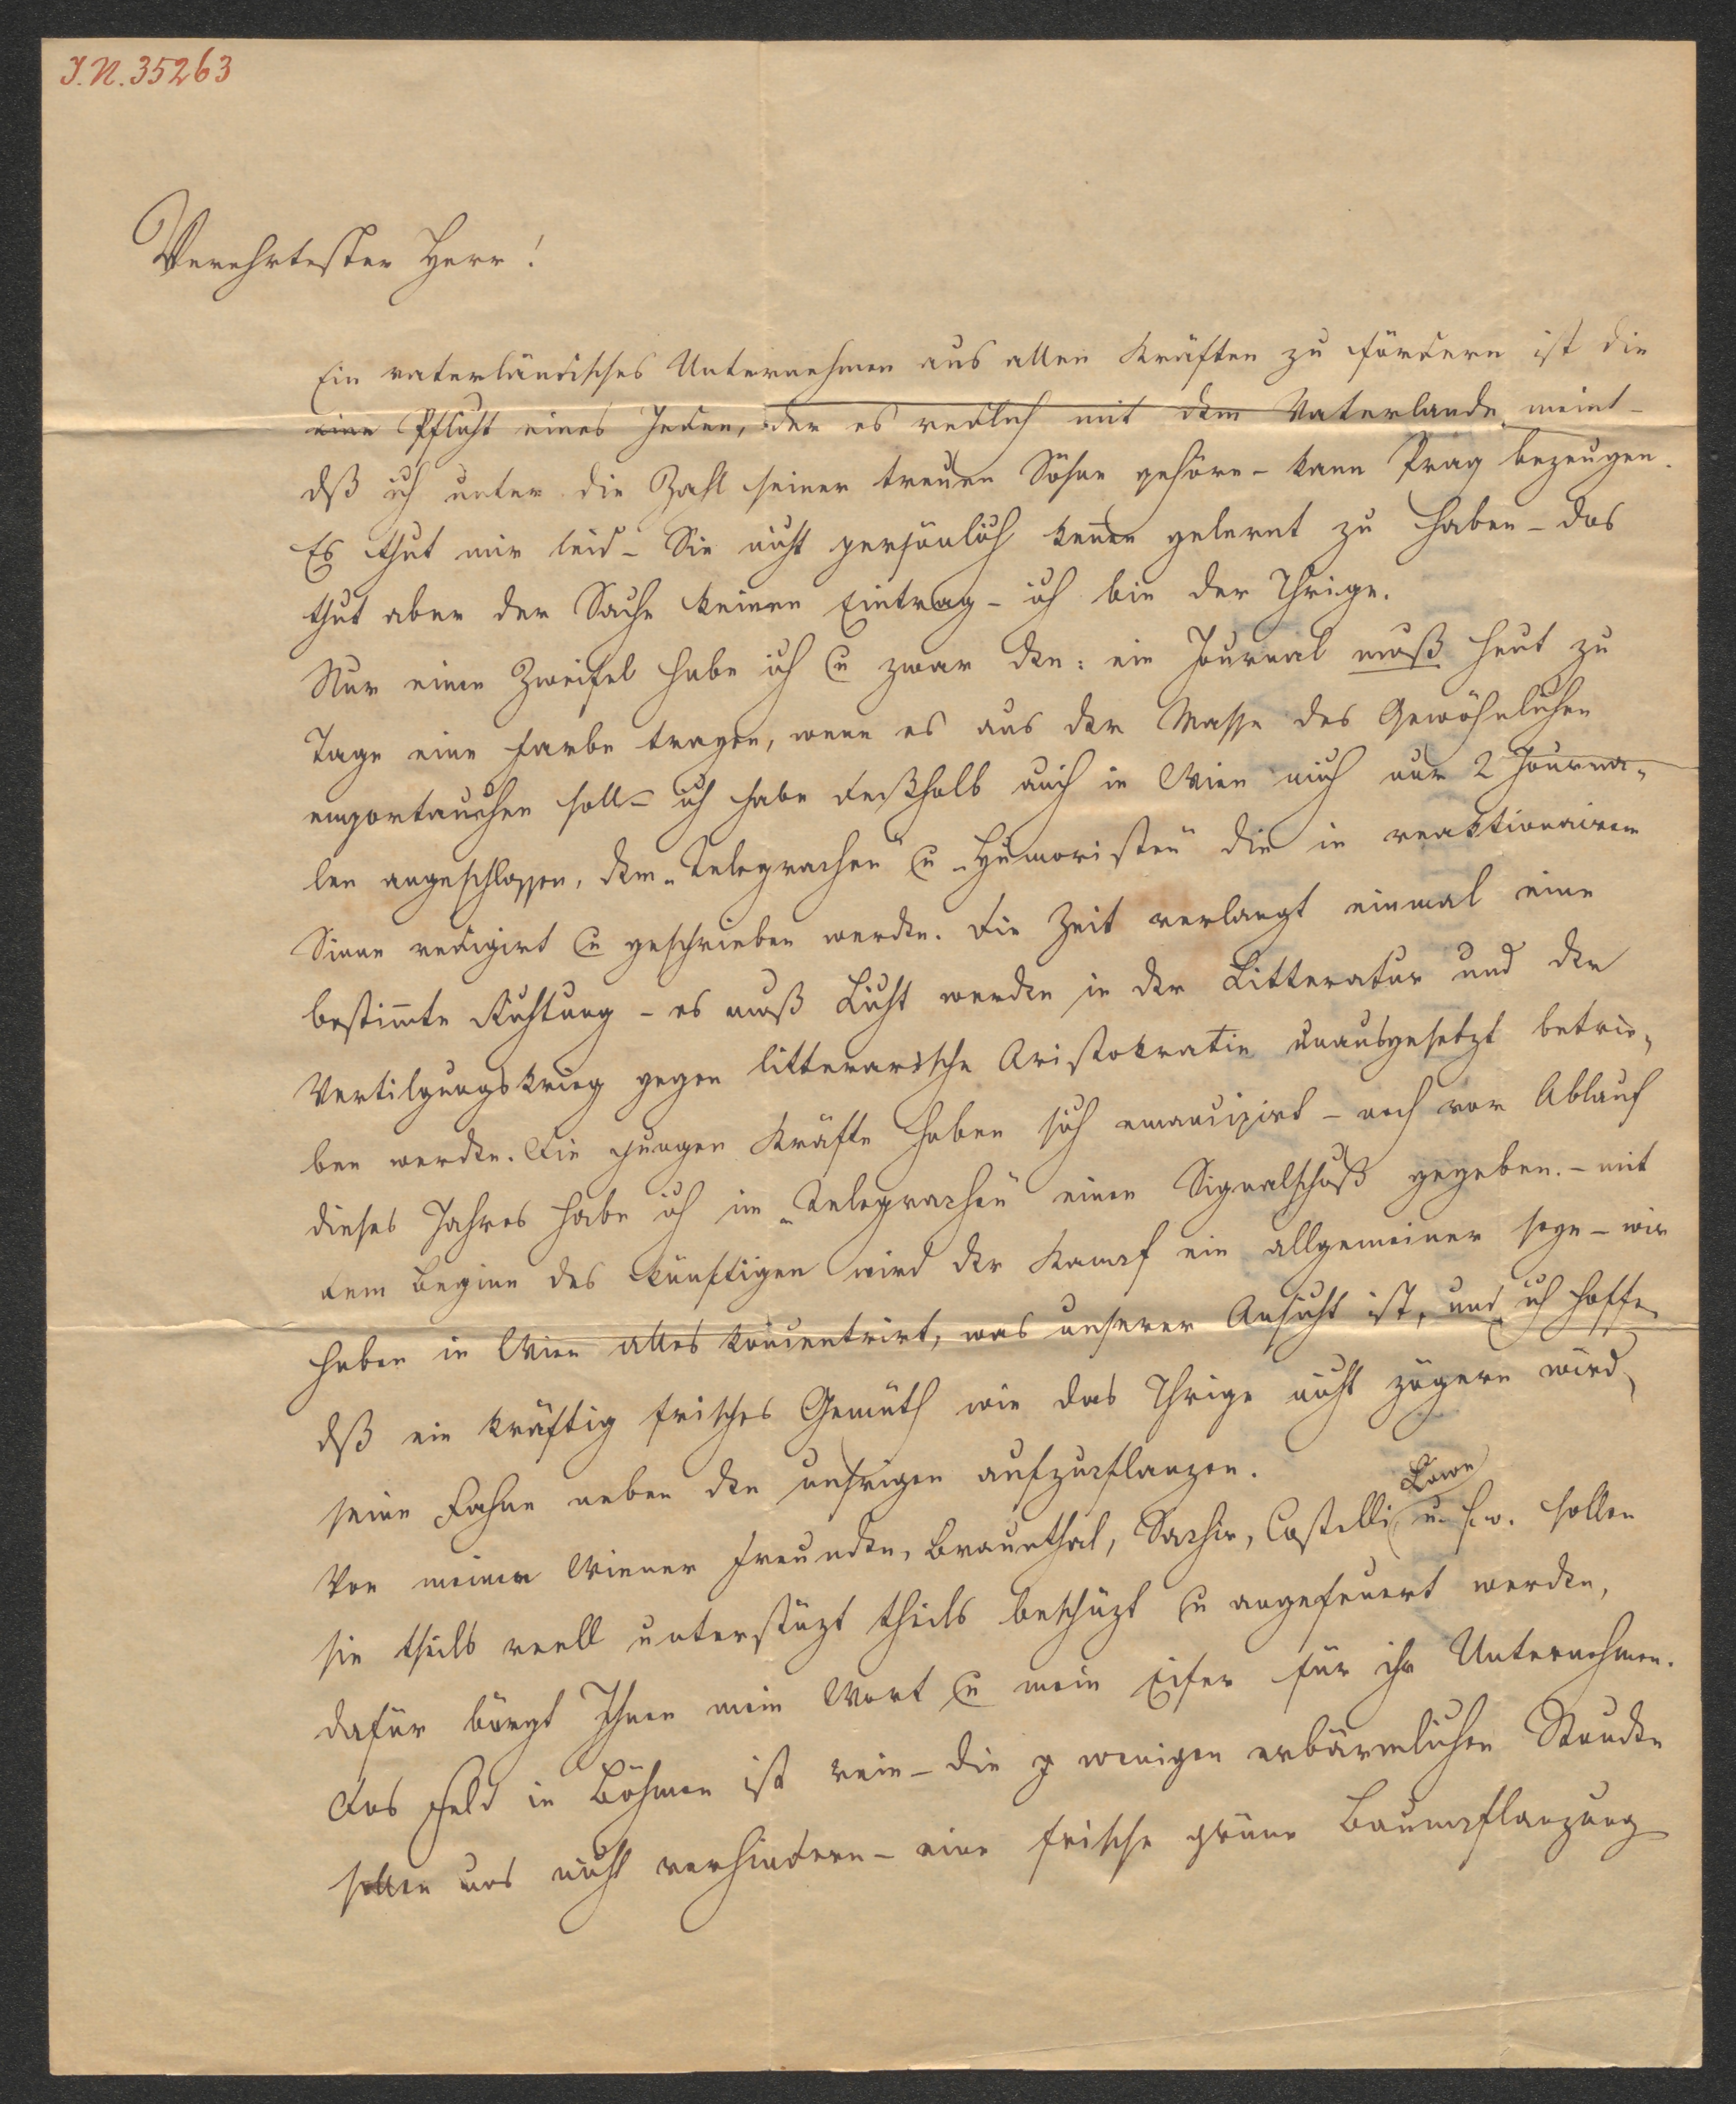 I.N. 35263
Verehrtester Herr!
Ein vaterländisches Unternehmen aus allen Kräften zu fördern ist die
eine Pflicht eines Jeden, der es redlich mit dem Vaterlande meint –
dß ich unter die Zahl seiner treuen Söhne gehöre – kann Prag bezeugen.
Es thut mir leid – Sie nicht persönlich kennen gelernt zu haben – das
thut aber der Sache keinen Eintrag – ich bin der Ihrige.
Nur einen Zweifel habe ich u zwar den: ein Journal muß heut zu
Tage eine Farbe tragen, wenn es aus der Masse des Gewöhnlichen
emportauchen soll – ich habe deßhalb auch in Wien mich nur 2 Journa-
len angeschlossen, dem „Telegraphen“ u „Humoristen“ die in reaktionairem
Sinne redigirt u geschrieben werden. Die Zeit verlangt einmal eine
bestimmte Richtung – es muß Licht werden in der Litteratur und der
Vertilgungskrieg gegen litterarische Aristokratie unausgesetzt betrie-
ben werden. Die jungen Kräfte haben sich emancipirt – noch vor Ablauf
dieses Jahres habe ich im „Telegraphen“ einen Signalschuß gegeben. – mit
dem Beginn des künftigen wird der Kampf ein allgemeiner seyn – wir
haben in Wien alles koncentrirt, was unserer Ansicht ist, und ich hoffe
dß ein kräftig frisches Gemüth wie das Ihrige nicht zögern wird,
seine Fahne neben den unsrigen aufzupflanzen.
Von meinen Wiener Freunden, Braunthal, Saphir, Castelli Löwe u. s. w. sollen
sie theils reell unterstüzt theils beschüzt u angefeuert werden,
dafür bürgt Ihnen mein Wort u mein Eifer für ihr Unternehmen.
Das Feld in Böhmen ist rein – die wenigen erbärmlichen Stauden
sollen uns nicht verhindern – eine frische grüne Baumpflanzung